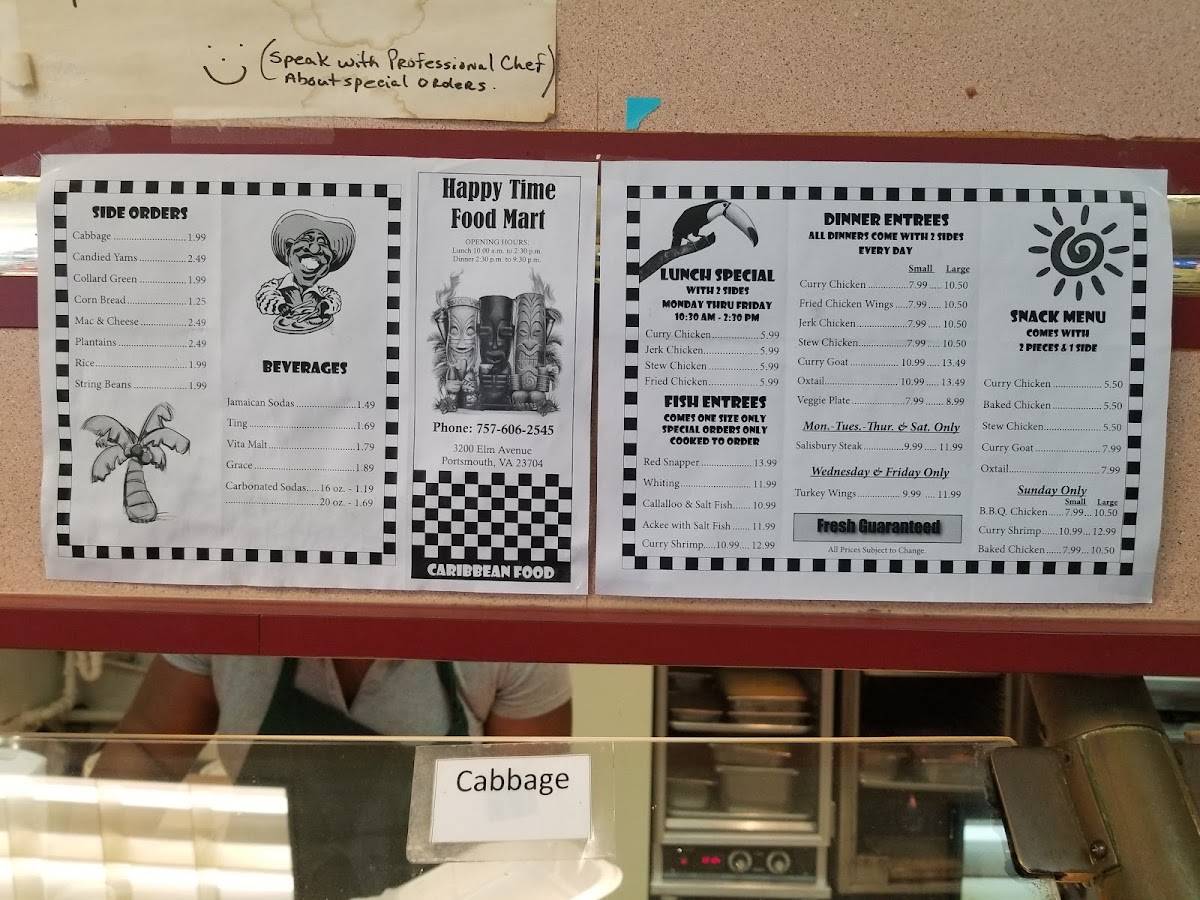 (Speak with Professional Chef)
About special orders.
SIDE ORDERS
Cabbage 1.99
Candied Yams 2.49
Collard Green 1.99
Corn Bread 1.25
Mac & Cheese 2.49
Plantains 2.49
Rice 1.99
String Beans 1.99
BEVERAGES
Jamaican Sodas 1.49
Ting 1.69
Vita Malt 1.79
Grace 1.89
Carbonated Sodas.....16 oz. - 1.19
20 oz. - 1.69
Happy Time
Food Mart
OPENING HOURS:
Lunch 10:00 a.m. to 2:30 p.m.
Dinner 2:30 p.m. to 9:30 p.m.
Phone: 757-606-2545
3200 Elm Avenue
Portsmouth, VA 23704
CARIBBEAN FOOD
LUNCH SPECIAL
WITH 2 SIDES
MONDAY THRU FRIDAY
10:30 AM - 2:30 PM
Curry Chicken 5.99
Jerk Chicken 5.99
Stew Chicken 5.99
Fried Chicken 5.99
FISH ENTREES
COMES ONE SIZE ONLY
SPECIAL ORDERS ONLY
COOKED TO ORDER
Red Snapper 13.99
Whiting 11.99
Callalloo & Salt Fish 10.99
Ackee with Salt Fish 11.99
Curry Shrimp.....10.99.... 12.99
DINNER ENTREES
ALL DINNERS COME WITH 2 SIDES
EVERY DAY
Small Large
Curry Chicken 7.99 ..... 10.50
Fried Chicken Wings 7.99 ..... 10.50
Jerk Chicken 7.99 ..... 10.50
Stew Chicken 7.99 ..... 10.50
Curry Goat 10.99 ..... 13.49
Oxtail 10.99 ..... 13.49
Veggie Plate 7.99 ..... 8.99
Mon.-Tues.-Thur. & Sat. Only
Salisbury Steak 9.99 .... 11.99
Wednesday & Friday Only
Turkey Wings 9.99 .... 11.99
Fresh Guaranteed
All Prices Subject to Change.
SNACK MENU
COMES WITH
2 PIECES & 1 SIDE
Curry Chicken 5.50
Baked Chicken 5.50
Stew Chicken 5.50
Curry Goat 7.99
Oxtail 7.99
Sunday Only
Small Large
B.B.Q. Chicken 7.99... 10.50
Curry Shrimp 10.99... 12.99
Baked Chicken 7.99... 10.50
Cabbage